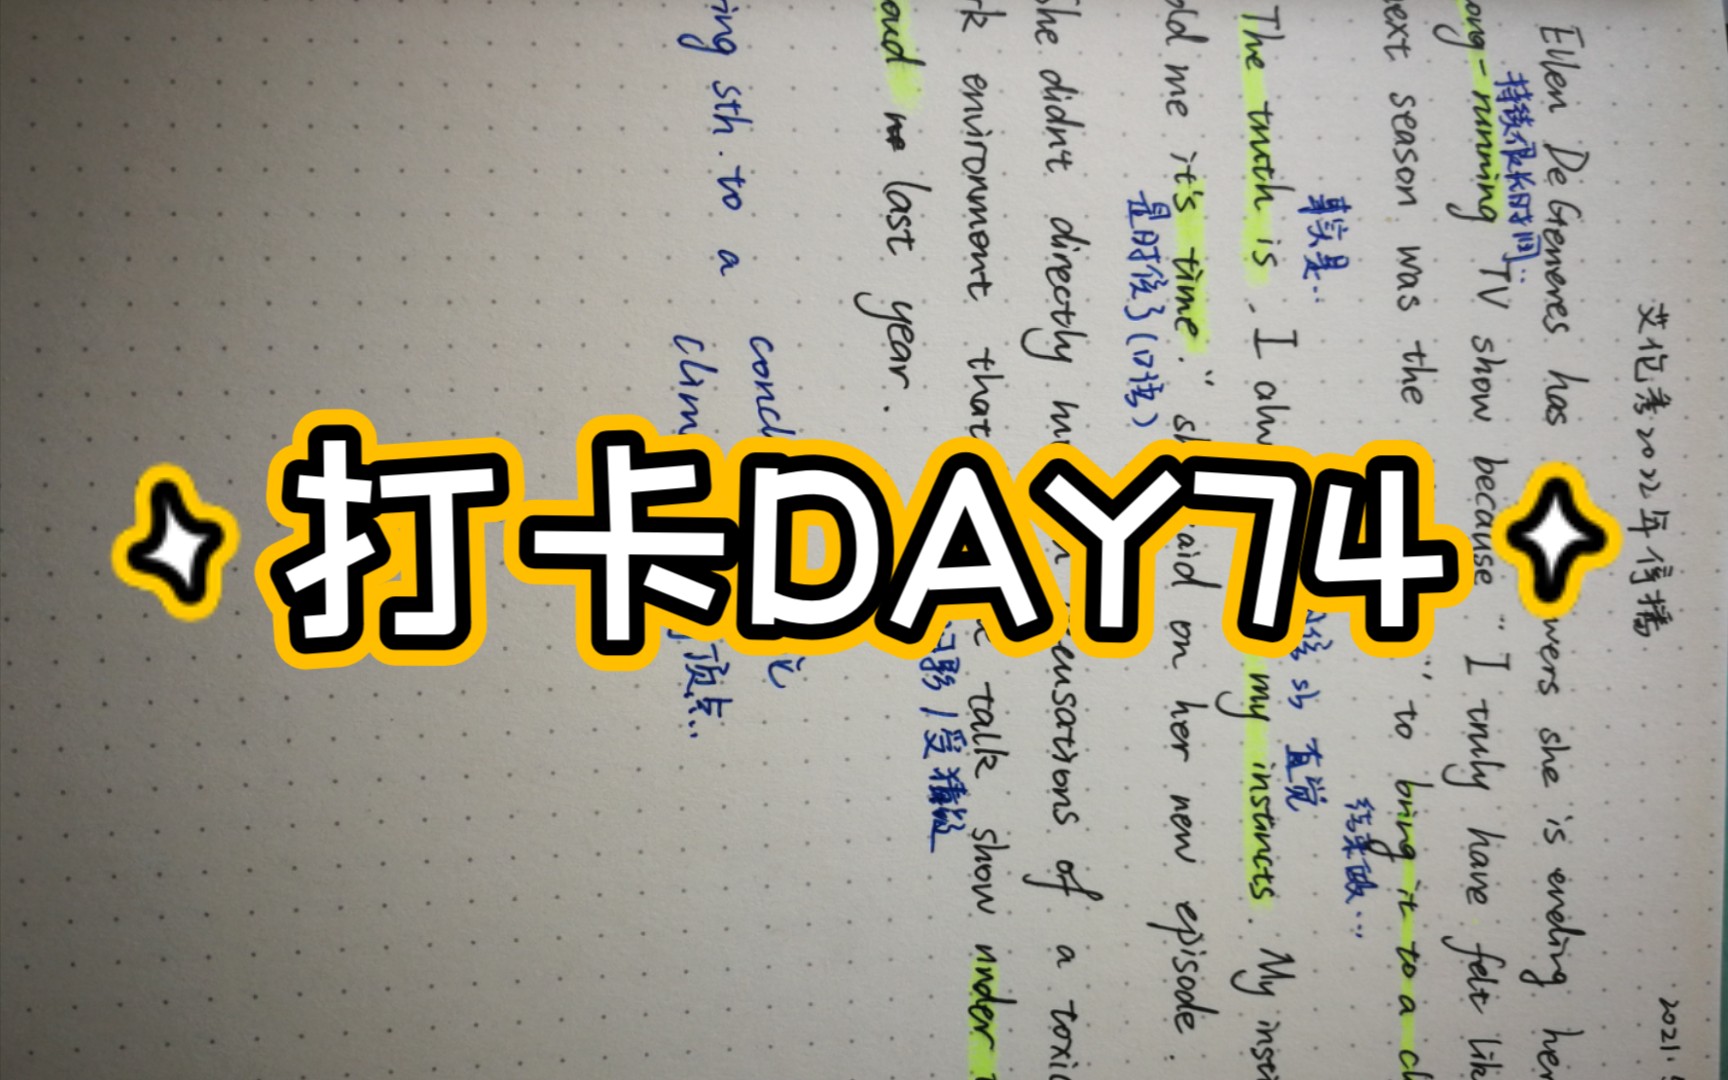 打卡DAY74
艾伦秀2022年停播
2021.
Ellen DeGeneres has wers she is ending her
持续很长时间..
ong-running TV show because "I truly have felt lik
next season was the " to bring it to a cl
结束..
事实是.. 直觉
The truth is, I alw my instincts. My insti
old me it's time." s aid on her new episode.
是时候了(口语)
She didn't directly eusations of a toxic
rk environment that talk show under
oud last year.
ing sth. to a concl
clim 顶点..